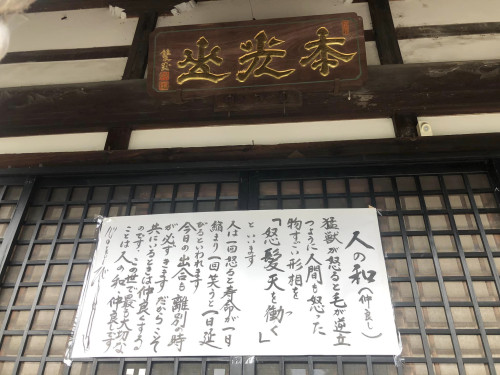 本光山
人の和(仲良し)
猛獣が怒ると毛が逆立
つように人間も怒った
物すごい形相を
「怒髪天を衝く」
といいます
人は一回怒ると寿命が一日
縮まり一回笑うと一日延
びるといわれます
今日の出会も離別の時
が必ずきます だからこそ
共にいるときは仲良くするも
のです この世で最も大切な
ことは人の和 仲良しです